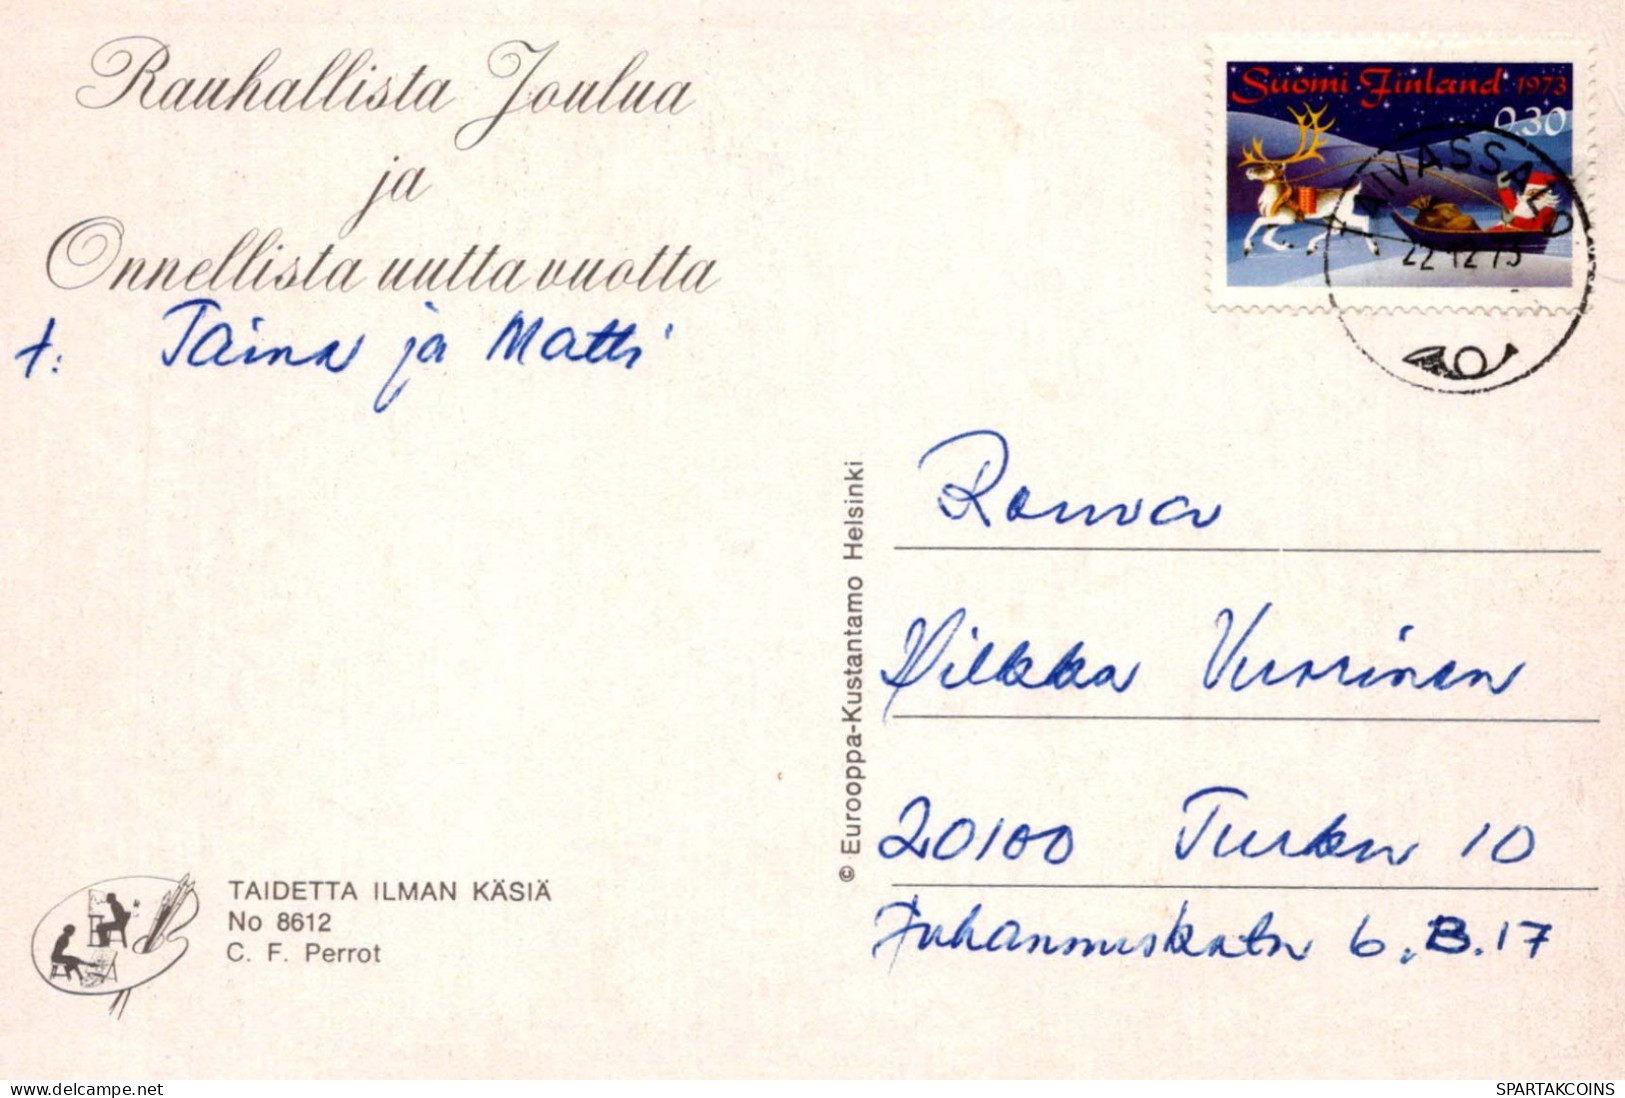 Rauhallista Joulua
ja
Onnellista uutta vuotta
t: Taina ja Matti
Suomi Finland 1973
0.30
TAIVASSALO
22.12.73
Rouva
Vilkka Vuorinen
20100 Turku 10
Juhannuskatu 6.B.17
© Eurooppa-Kustantamo Helsinki
TAIDETTA ILMAN KÄSIÄ
No 8612
C. F. Perrot
delcampe.net
SPARTAKCOINS